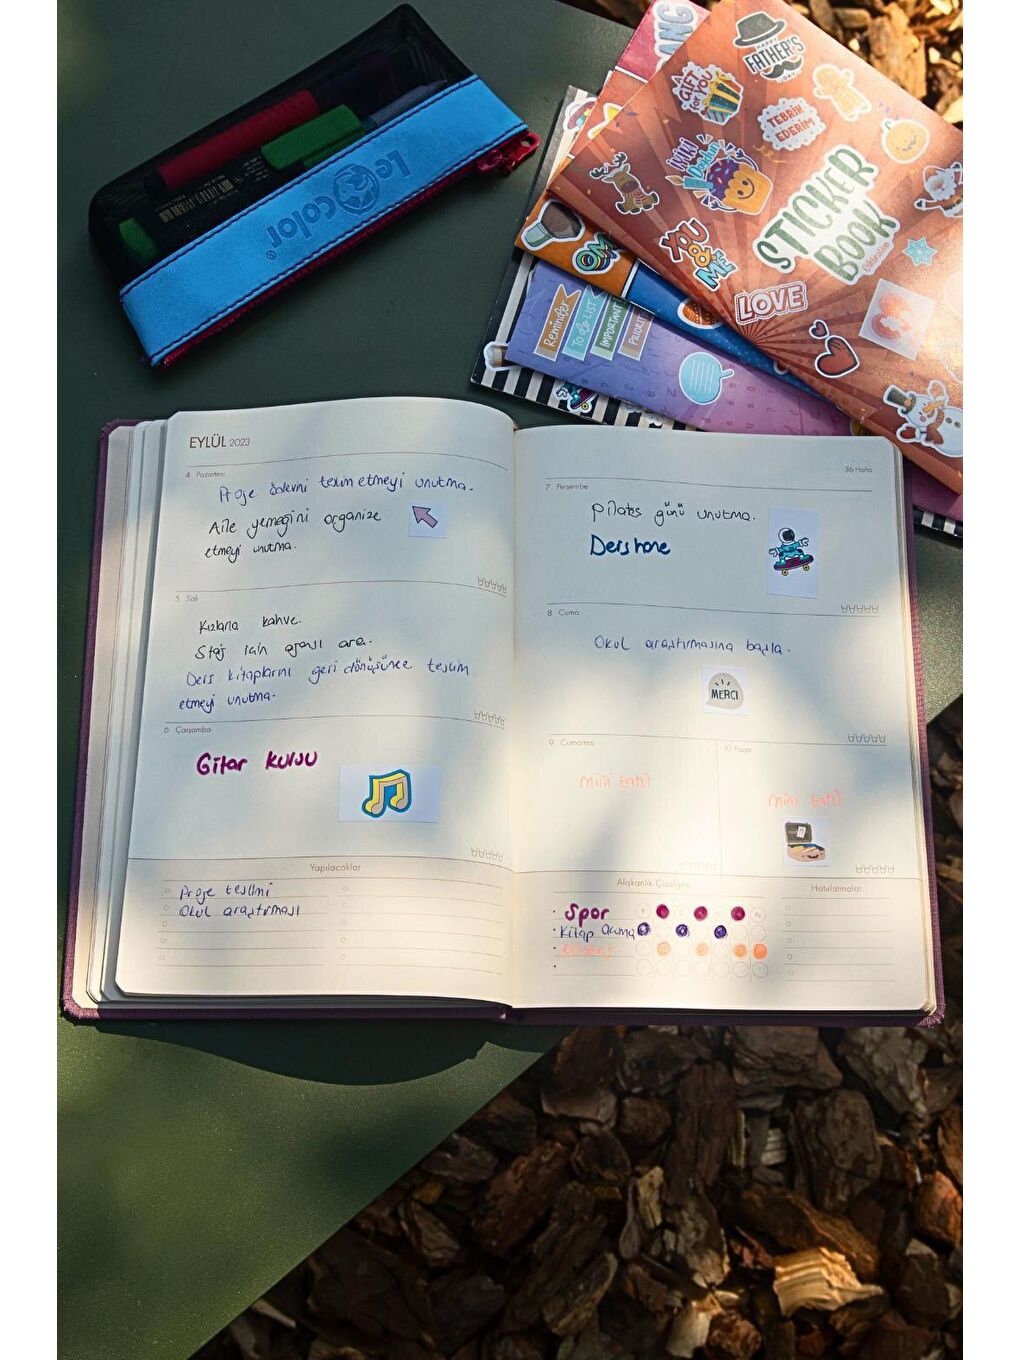 Le Color
HAPPY
FATHER'S
DAY
A
GIFT
FOR YOU
TEBRİK
EDERİM
İyiki
Doğdun
STICKER
BOOK
YOU
&
ME
LOVE
Reminder
TO DO LIST
IMPORTANT
EYLÜL 2023
4 Pazartesi
Proje ödevini teslim etmeyi unutma.
Aile yemeğini organize
etmeyi unutma.
5 Salı
Kızlarla kahve.
Staj için ajansı ara.
Ders kitaplarını geri dönüşüme teslim
etmeyi unutma.
6 Çarşamba
Gitar kursu
Yapılacaklar
Proje teslimi
Okul araştırması
36 Hafta
7 Perşembe
Pilates günü unutma.
Dershane
8 Cuma
Okul araştırmasına başla.
MERCI
9 Cumartesi
mini tatil
10 Pazar
mini tatil
Alışkanlık Çizelgesi
Spor
Kitap Okuma
Pilates
Hatırlatmalar